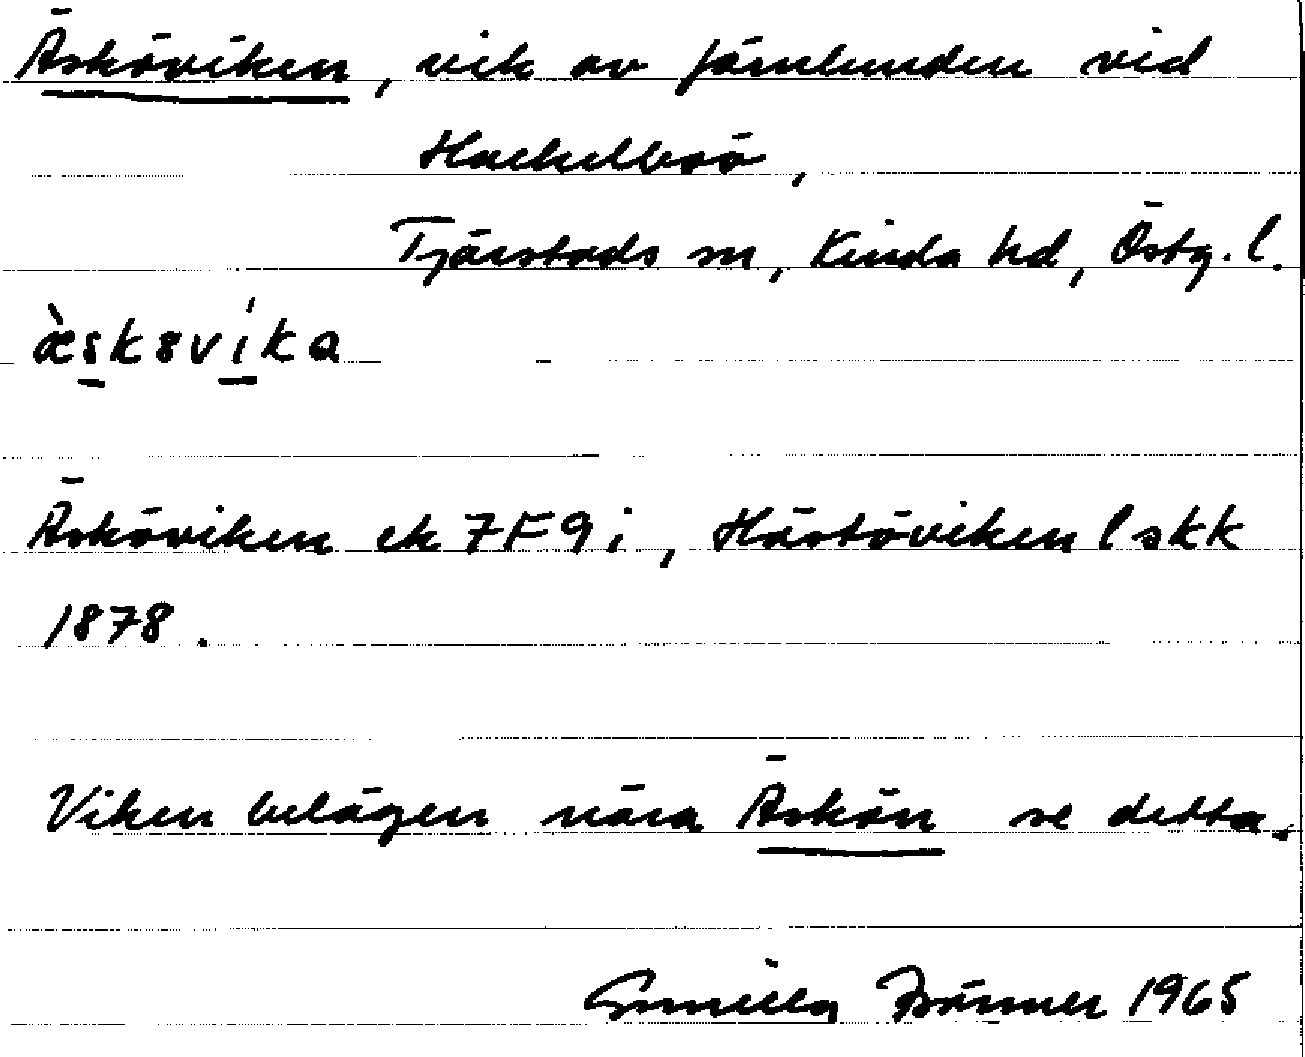 Äsköviken, vik av Järnlunden vid
Hackelboö,
Tjärstads sn, Kinda hd, Östg. l.
æ̀sk8víka
Äsköviken ek 7F9i, Häståviken lskk
1878.
Viken belägen nära Äskön se detta.
Gunilla Bränner 1965